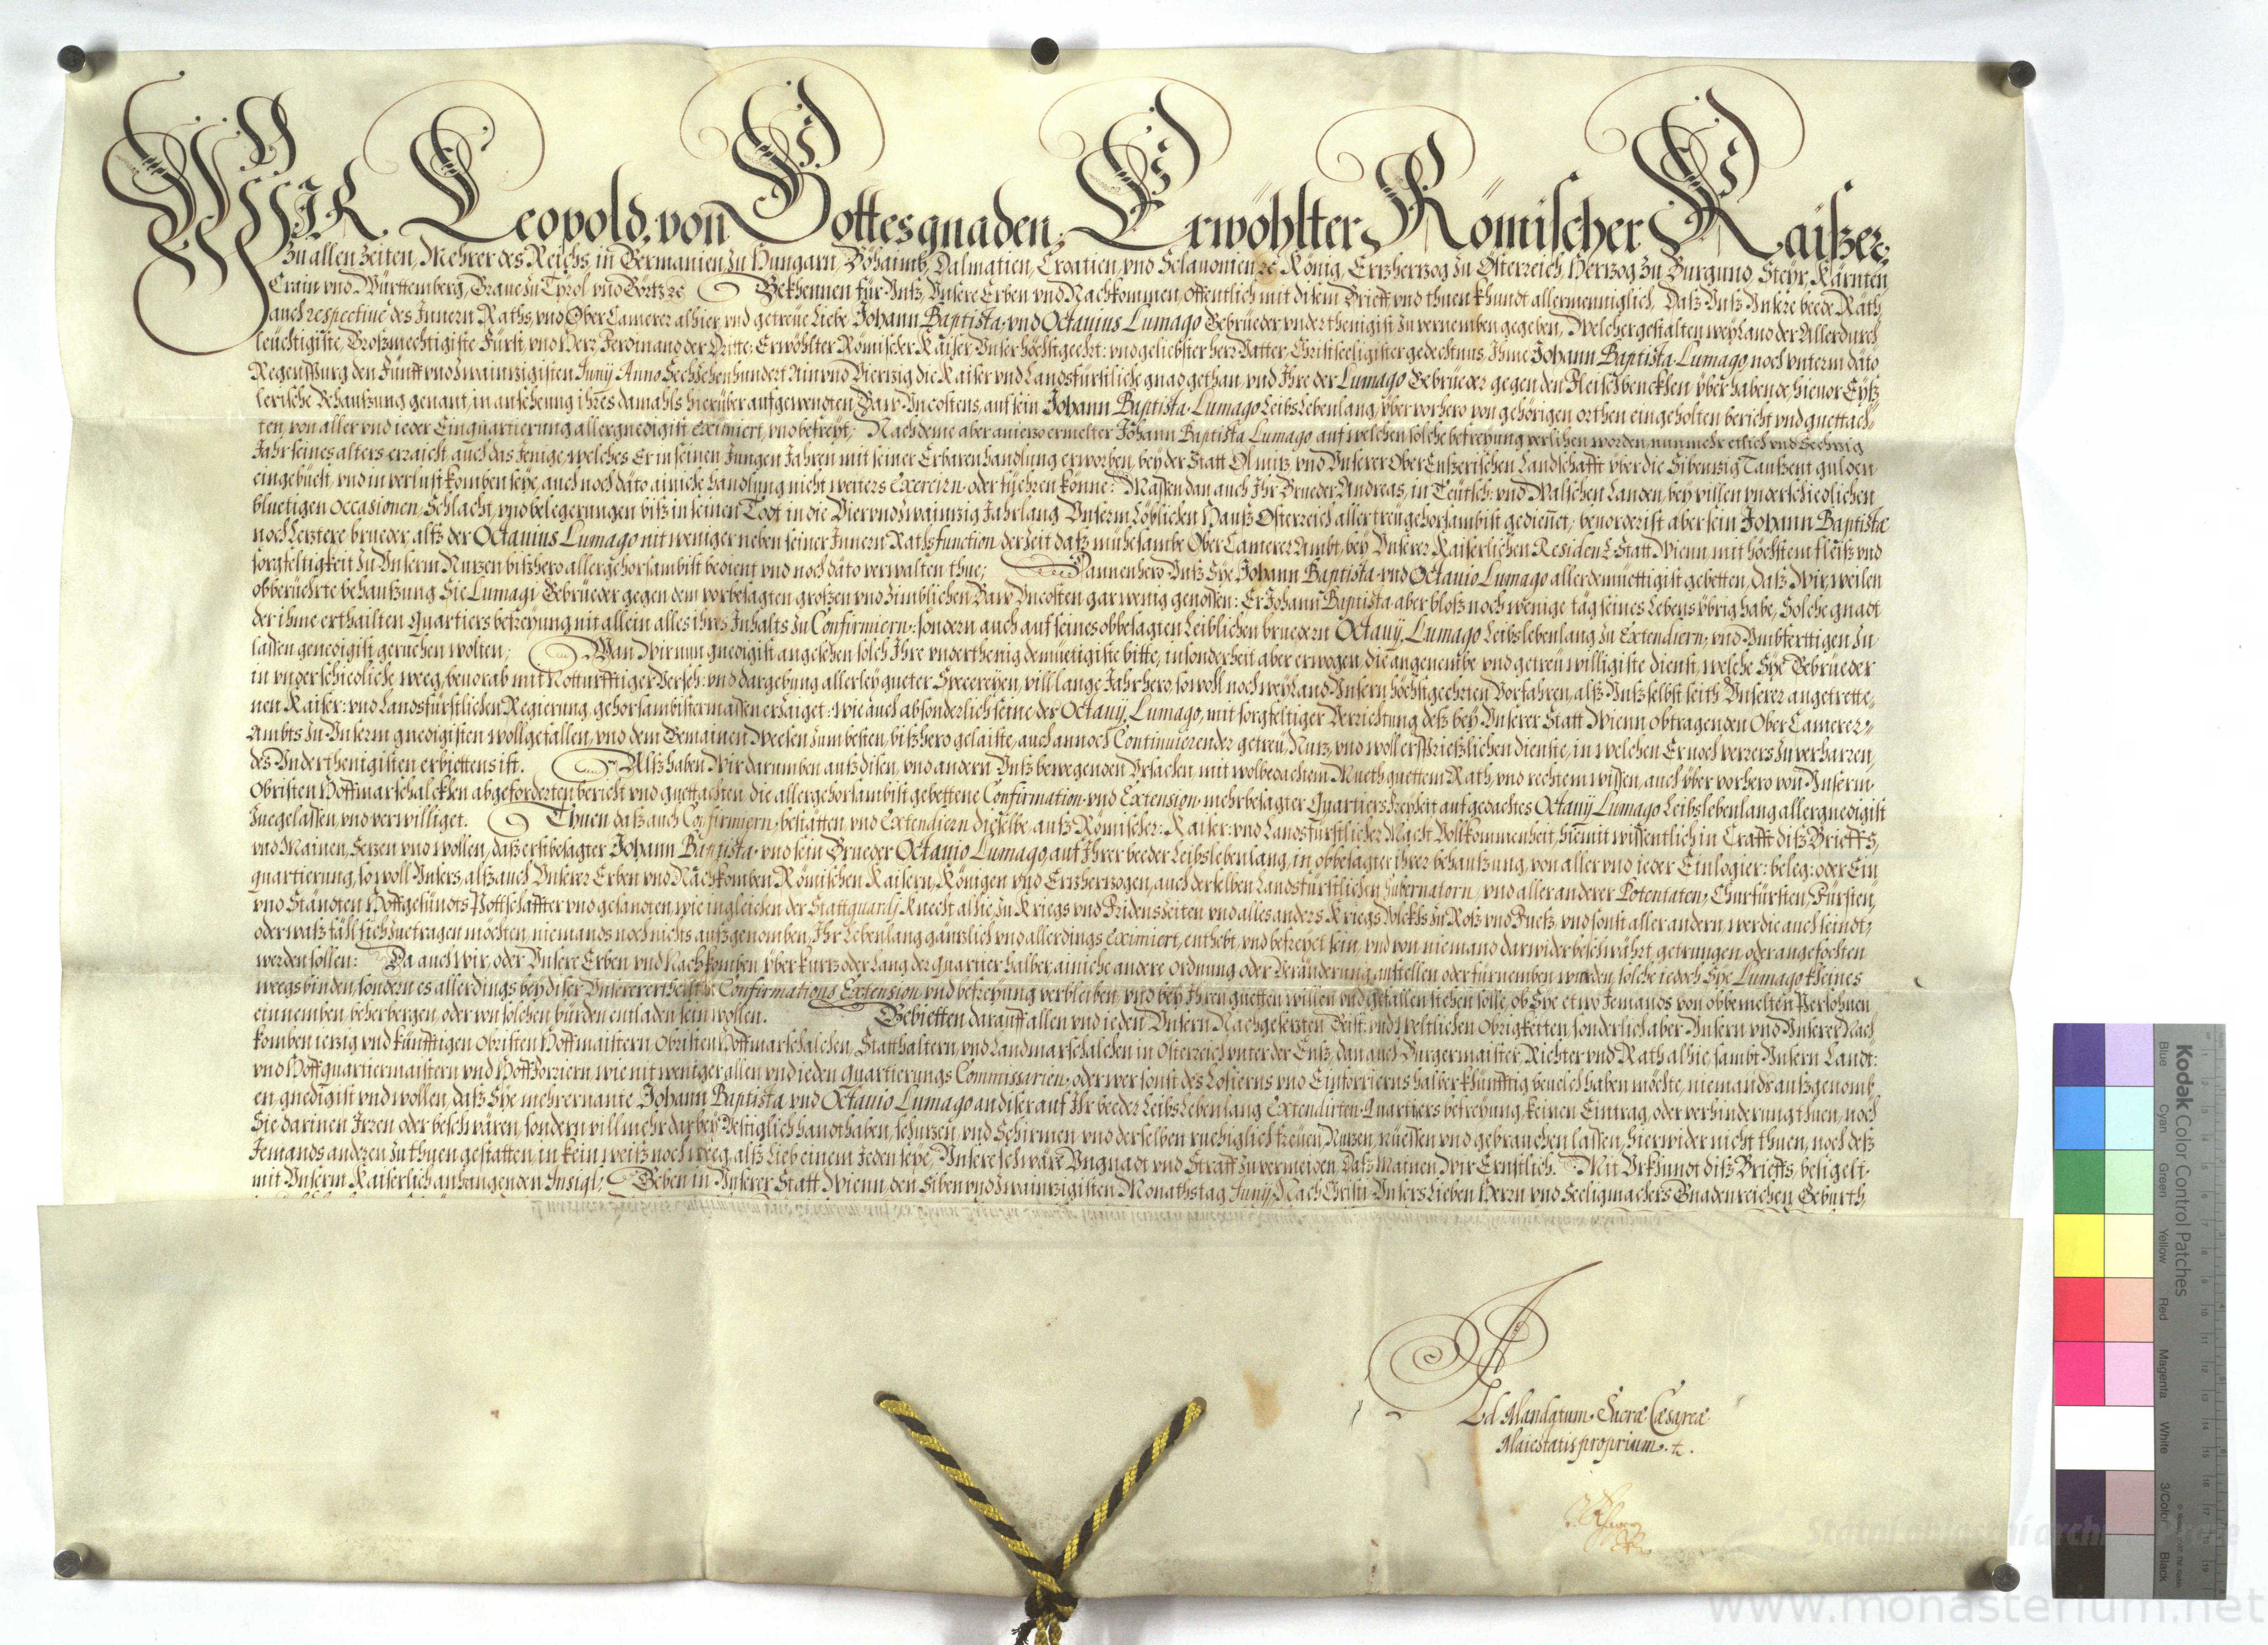 WIR Leopold, von Gottes gnaden, Erwöhlter Römischer Kaißer,
Zu allen Zeiten, Mehrer des Reichs, in Germanien, Zu Hungarn, Böhaimb, Dalmatien, Croatien, vnd Sclauonien ꝛc König, Ertzhertzog Zu Österreich, Hertzog Zu Burgund, Steyr, Kärnten,
Crain vnd Württemberg, Graue Zu Tyrol vnd Görtz ꝛc Bekhennen für Vnß, Vnsere Erben vnd Nachkommen, offentlich mit disem Brieff, vnd thuen khundt allermenniglich, Daß Vnß Vnsere beede Räth,
auch respectiue des Innern Raths, vnd Ober Camerer alhier, vnd getreüe Liebe Johann Baptista, vnd Octauius Lumago Gebrüeder vnderthenigist Zu vernemben gegeben, Welchergestalten weyland der Allerdurch
leüchtigiste, Großmechtigiste Fürst, vnd Herr Ferdinand der Dritte, Erwöhlter Römischer Kaiser, Vnser höchstgeehrt: vnd geliebster Herr Vatter, Christseeligister gedechtnus, Ihme Johann Baptista Lumago, noch vnterm dato
Regenspurg den Fünff vnd Zwaintzigisten Junij Anno Sechzehenhundert Ain vnd Viertzig die Kaiser vnd Landsfürstliche gnad gethan, vnd Ihre der Lumago Gebrüeder gegen den Fleischbenckhen über habende, hieuor Eyß
lerische Behaußung genant, in ansehung ihres damahls hierüber aufgewendten Baw Vncostens, auf sein Johann Baptista Lumago Leibs Lebenlang, über vorhero von gehörigen orthen eingeholten bericht vnd guettach
ten, von aller vnd ieder Einquartierung allergnedigist eximiert, vnd befreyt; Nachdeme aber anietzo ermelter Johann Baptista Lumago auf welchen solche befreyung verlihen worden, nunmehr etlich vnd Sechtzig
Jahr seines alters erraicht, auch das Jenige, welches Er in seinen Jungen Jahren mit seiner Erbaren handlung erworben, bey der Statt Olmitz, vnd Vnserer Ober Ennserischen Landschafft über die Sibentzig Taußent gulden
eingebüest, vnd in verlust komben seye, auch noch dato ainiche handlung nicht weiters Exerciern oder füehren könne: Massen dan auch Ihr Brueder Andreas, in Teütsch: vnd Wälschen Landen, bey villen vnderschiedlichen
bluetigen Occasionen, Schlacht, vnd belegerungen biß in seinen Todt in die Vier vnd Zwaintzig Jahr lang Vnserm Löblichen Hauß Österreich aller treügehorsambist gedienet, beuorderist aber sein Johann Baptistæ
noch letztere brueder, alß der Octauius Lumago nit weniger neben seiner Innern Raths function der Zeit daß mühesambe Ober Camerer Ambt, bey Vnserer Kaiserlichen Residentz Statt Wienn, mit höchstem fleiß vnd
sorgfeltigkeit Zu Vnserm Nutzen bißhero allergehorsambist bedient vnd noch dato verwalten thue; Dannenhero Vnß Sye Johann Baptista vnd Octauio Lumago allerdemüettigist gebetten, Daß Wir, weilen
obberüehrte behaußung Sie Lumagi Gebrüeder gegen dem vorbesagten großen vnd Zimblichen Baw Vncosten gar wenig genossen: Er Johann Baptista aber bloß noch wenige täg seines Lebens übrig habe, Solche gnad
der ihme erthailten Quartiers befreyung nit allein alles ihres Inhalts Zu Confirmiern: sondern auch auf seines obbesagten Leiblichen bruedern Octauij Lumago Leibslebenlang Zu Extendiern, vnd Vmbferttigen Zu
lassen genedigist geruehen wolten; Wan Wir nun gnedigist angesehen solch Ihre vnderthenig demüetigiste bitte, insonderheit aber erwogen, die angenembe vnd getreü willigiste dienst, welche Sye Gebrüeder
in vnderschiedliche weeg, beuorab mit Notturfftiger Verseh: vnd dargebung allerley gueter Specereyen, vill lange Jahr hero, sowoll noch weyland Vnsern höchstgeehrten Vorfahren, alß Vnß selbst seith Vnserer angetrette
nen Kaiser: vnd Landsfürstlichen Regierung, gehorsambistermassen erzaiget: Wie auch absonderlich seine der Octauij Lumago, mit sorgfeltiger Verrichtung deß bey Vnserer Statt Wienn obtragenden Ober Camerer
Ambts Zu Vnserm gnedigisten wollgefallen, vnd dem Gemainen Weesen Zum besten, bißhero gelaiste, auch annoch Continuierender getreü, Nutz, vnd woll ersprießlichen dienste, in welchen Er noch verrers Zu verharren,
des Vnderthenigisten erbiettens ist. Alß haben Wir darumben auß disen, vnd andern Vnß bewegenden Vrsachen, mit wolbedachtem Mueth, guettem Rath, vnd rechtem wissen, auch über vorhero von Vnserm
Obristen Hoffmarschalckhen abgeforderten bericht vnd guettachten, die allergehorsambist gebettene Confirmation vnd Extension mehrbesagter Quartiers Freyheit auf gedachtes Octauij Lumago Leibslebenlang allergnedigist
Zuegelassen, vnd verwilliget. Thuen daß auch Confirmiern, bestätten, vnd Extendiern dieselbe auß Römischer: Kaiser: vnd Landsfürstlicher Macht Vollkommenheit, hiemit wissentlich in Crafft diß Brieffs,
vnd Mainen, Setzen vnd wollen, daß erstbesagter Johann Baptista vnd sein Brueder Octauio Lumago, auf Ihrer beeder Leibslebenlang, in obbesagter ihrer behaußung, von aller vnd ieder Einlogier: beleg: oder Ein
quartierung, sowoll Vnsers, alß auch Vnserer Erben vnd Nachkomben Römischen Kaisern, Königen vnd Ertzhertzogen, auch derselben Landsfürstlichen Gubernatorn, vnd aller anderer Potentaten, Churfürsten, Fürsten,
vnd Ständten Hoffgesündts Pottschaffter vnd gesandten, wie ingleichen der Stattguardj Knecht alhie, Zu Kriegs vnd Fridens Zeiten vnd alles anders Kriegs Volckhs Zu Roß vnd Fueß, vnd sonst aller andern, wer die auch seindt,
oder waß fäll sich Zuetragen möchten, niemands noch nichs außgenomben, Ihr Lebenlang gäntzlich vnd allerdings Eximiert, enthebt, vnd befreyet sein, vnd von niemand darwider beschwährt, getrungen, oder angefochten
werden sollen: Da auch Wir, oder Vnsere Erben vnd Nachkomben über kurtz oder Lang der quartier halber, ainiche andere ordnung oder Veränderung anstellen oder fürnemben wurden, solche iedoch Sye Lumago kheines
weegs binden, sondern es allerdings bey diser Vnserer ertheilten Confirmations Extension vnd befreyung verbleiben, vnd bey Ihren guetten willen vnd gefallen stehen solle, ob Sye etwo Jemands von obbemelten Persohnen
einnemben, beherbergen, oder von solchen bürden entladen sein wollen. Gebietten darauff allen vnd ieden Vnsern Nachgesetzten Geist: vnd Weltlichen Obrigkeiten, sonderlich aber Vnsern vnd Vnserer Nach
komben ietzig vnd künfftigen Obristen Hoffmaistern, Obristen Hoffmarschalchen, Statthaltern, vnd Landmarschalchen in Österreich vnter der Ennß, dan auch Burgermaister, Richter vnd Rath alhie, sambt Vnsern Landt:
vnd Hoffquartiermaistern vnd Hoff Forriern, wie nit weniger allen vnd ieden Quartierungs Commissarien, oder wer sonst des Losierns vnd Einforrierns halber khünfftig beuelch haben möchte, niemandt außgenomb
en, gnedigist vnd wollen, daß Sye mehrernante Johann Baptista vnd Octauio Lumago an diser auf Ihr beeder Leibs Lebenlang Extendirten Quartiers befreyung, keinen Eintrag, oder verhinderung thuen, noch
Sie darinen Irren oder beschwären, sondern vill mehr darbey Vestiglich handthaben, schutzen, vnd Schirmen vnd derselben ruehiglich freüen, Nutzen, nüessen vnd gebrauchen lassen, hierwider nicht thuen, noch deß
Jemands anderen Zu thuen gestatten, in kein weiß noch weeg, alß Lieb einem Jeden seye, Vnsere schwäre Vngnadt vnd Straff Zuvermeiden, Daß Mainen Wir Ernstlich. Mit Vrkhundt diß Brieffs, besigelt
mit Vnserm Kaiserlich anhangenden Insigl; Geben in Vnserer Statt Wienn, den Siben vnd Zwaintzigisten Monathstag Junij, Nach Christi Vnsers Lieben Herrn vnd Seeligmachers Gnadenreichen Geburth,
Ad Mandatum Sacræ Cæsareæ
Maiestatis proprium. ꝛc.
Kodak Color Control Patches
Blue Cyan Green Yellow Red Magenta White 3/Color Black
www.monasterium.net